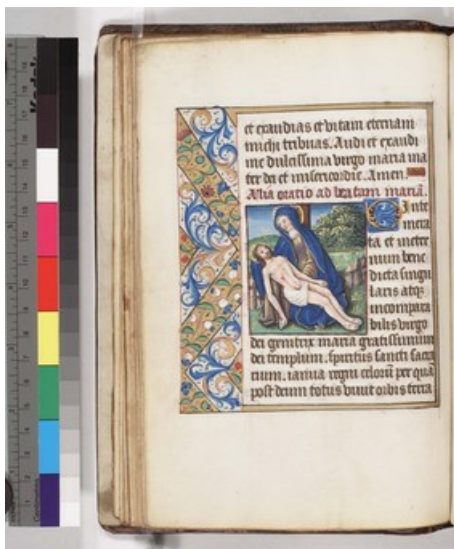 et exaudias et vitam eternam
michi tribuas. Audi et exaudi
me dulcissima virgo maria ma
ter dei et misericordie. Amen.
Alia oratio ad beatam mariā.
O Inte
mera
ta et in eter
num bene
dicta singu
laris atqꝫ
incompara
bilis virgo
dei genitrix maria gratissimum
dei templum. spiritus sancti sacra
rium. ianua regni celorū per quā
post deum totus vivit orbis terra
Kodak
Centimetres